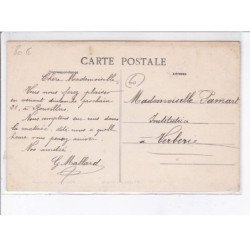 CARTE POSTALE
Chère Mademoiselle
Vous nous ferez plaisir
en venant dimanche prochain
Nous comptons sur vous dans
la matinée, dites nous à quelle
heure vous pensez arriver.
Nos amitiés
G. Mallard
Mademoiselle
Institutrice
à Verberie